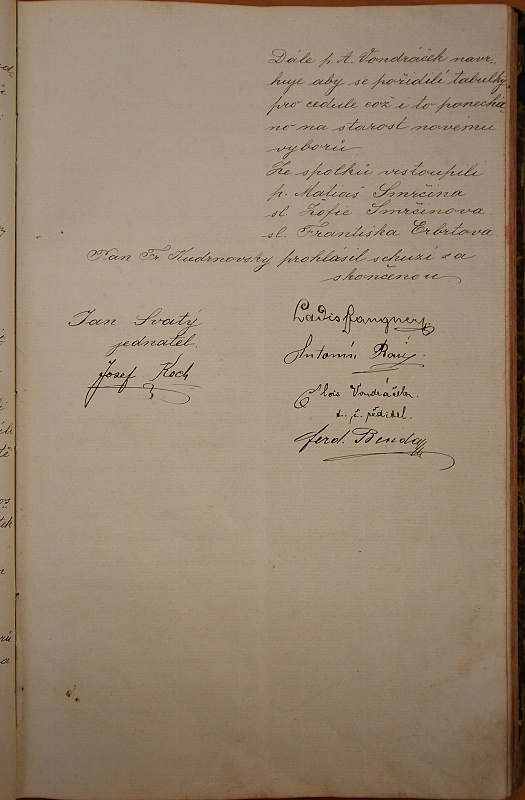 Dále p. A. Vondráček navr-
huje aby se pořídili tabulky
pro cedule což i to ponechá-
no na starost novému
vyborů
Ze spolků vistoupili
p. Matiaš Smrčina
sl. Žofie Smrčinova
sl. Františka Erbrtova
Pan Fr. Kudrnovsky prohlásil schuzi za
skončenou
Jan Svatý
jednatel.
Josef Koch
Ladis
Antonín
Alois Vondráček
t. č. ředitel.
ferd. Benda